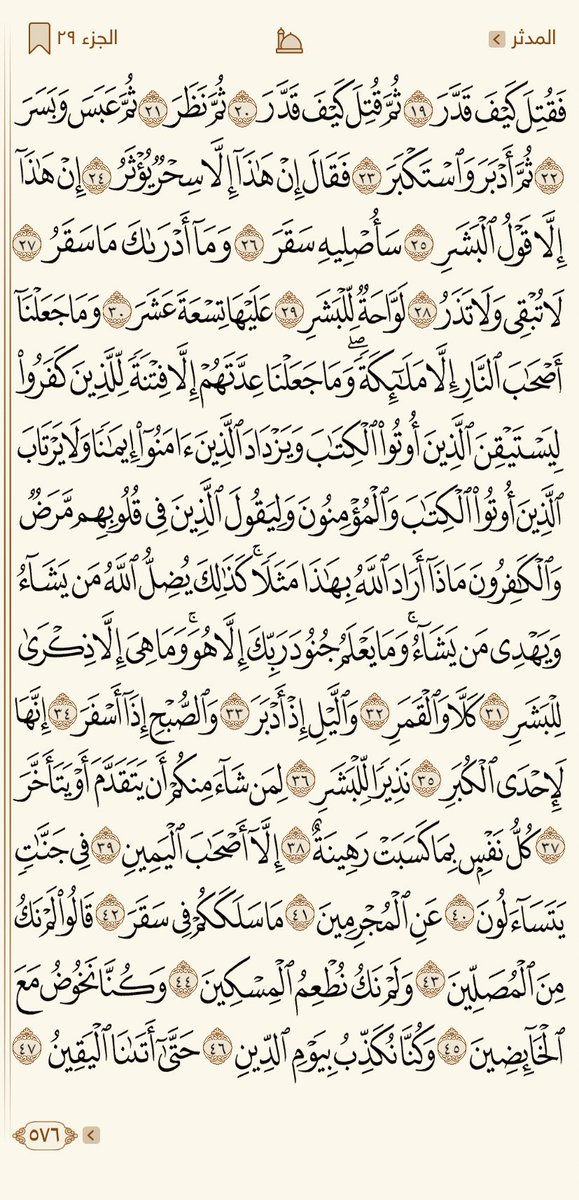 المدثر
الجزء ٢٩
فَقُتِلَ كَيْفَ قَدَّرَ ١٩ ثُمَّ قُتِلَ كَيْفَ قَدَّرَ ٢٠ ثُمَّ نَظَرَ ٢١ ثُمَّ عَبَسَ وَبَسَرَ
٢٢ ثُمَّ أَدْبَرَ وَٱسْتَكْبَرَ ٢٣ فَقَالَ إِنْ هَٰذَآ إِلَّا سِحْرٌ يُؤْثَرُ ٢٤ إِنْ هَٰذَآ
إِلَّا قَوْلُ ٱلْبَشَرِ ٢٥ سَأُصْلِيهِ سَقَرَ ٢٦ وَمَآ أَدْرَىٰكَ مَا سَقَرُ ٢٧
لَا تُبْقِى وَلَا تَذَرُ ٢٨ لَوَّاحَةٌ لِّلْبَشَرِ ٢٩ عَلَيْهَا تِسْعَةَ عَشَرَ ٣٠ وَمَا جَعَلْنَآ
أَصْحَٰبَ ٱلنَّارِ إِلَّا مَلَٰٓئِكَةً ۙ وَمَا جَعَلْنَا عِدَّتَهُمْ إِلَّا فِتْنَةً لِّلَّذِينَ كَفَرُوا۟
لِيَسْتَيْقِنَ ٱلَّذِينَ أُوتُوا۟ ٱلْكِتَٰبَ وَيَزْدَادَ ٱلَّذِينَ ءَامَنُوٓا۟ إِيمَٰنًا وَلَا يَرْتَابَ
ٱلَّذِينَ أُوتُوا۟ ٱلْكِتَٰبَ وَٱلْمُؤْمِنُونَ وَلِيَقُولَ ٱلَّذِينَ فِى قُلُوبِهِم مَّرَضٌ
وَٱلْكَٰفِرُونَ مَاذَآ أَرَادَ ٱللَّهُ بِهَٰذَا مَثَلًا ۚ كَذَٰلِكَ يُضِلُّ ٱللَّهُ مَن يَشَآءُ
وَيَهْدِى مَن يَشَآءُ ۚ وَمَا يَعْلَمُ جُنُودَ رَبِّكَ إِلَّا هُوَ ۚ وَمَا هِىَ إِلَّا ذِكْرَىٰ
لِلْبَشَرِ ٣١ كَلَّا وَٱلْقَمَرِ ٣٢ وَٱلَّيْلِ إِذْ أَدْبَرَ ٣٣ وَٱلصُّبْحِ إِذَآ أَسْفَرَ ٣٤ إِنَّهَا
لَإِحْدَى ٱلْكُبَرِ ٣٥ نَذِيرًا لِّلْبَشَرِ ٣٦ لِمَن شَآءَ مِنكُمْ أَن يَتَقَدَّمَ أَوْ يَتَأَخَّرَ
٣٧ كُلُّ نَفْسٍۭ بِمَا كَسَبَتْ رَهِينَةٌ ٣٨ إِلَّآ أَصْحَٰبَ ٱلْيَمِينِ ٣٩ فِى جَنَّٰتٍ
يَتَسَآءَلُونَ ٤٠ عَنِ ٱلْمُجْرِمِينَ ٤١ مَا سَلَكَكُمْ فِى سَقَرَ ٤٢ قَالُوا۟ لَمْ نَكُ
مِنَ ٱلْمُصَلِّينَ ٤٣ وَلَمْ نَكُ نُطْعِمُ ٱلْمِسْكِينَ ٤٤ وَكُنَّا نَخُوضُ مَعَ
ٱلْخَآئِضِينَ ٤٥ وَكُنَّا نُكَذِّبُ بِيَوْمِ ٱلدِّينِ ٤٦ حَتَّىٰٓ أَتَىٰنَا ٱلْيَقِينُ ٤٧
٥٧٦